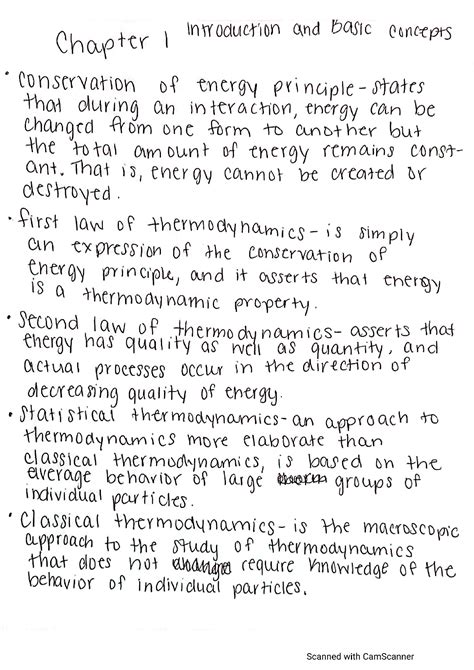 Chapter 1 Introduction and Basic Concepts
• Conservation of energy principle - states
that during an interaction, energy can be
changed from one form to another but
the total amount of energy remains const-
ant. That is, energy cannot be created or
destroyed.
• first law of thermodynamics - is simply
an expression of the conservation of
energy principle, and it asserts that energy
is a thermodynamic property.
• Second law of thermodynamics - asserts that
energy has quality as well as quantity, and
actual processes occur in the direction of
decreasing quality of energy.
• Statistical thermodynamics - an approach to
thermodynamics more elaborate than
classical thermodynamics, is based on the
average behavior of large groups of
individual particles.
• Classical thermodynamics - is the macroscopic
approach to the study of thermodynamics
that does not require knowledge of the
behavior of individual particles.
Scanned with CamScanner